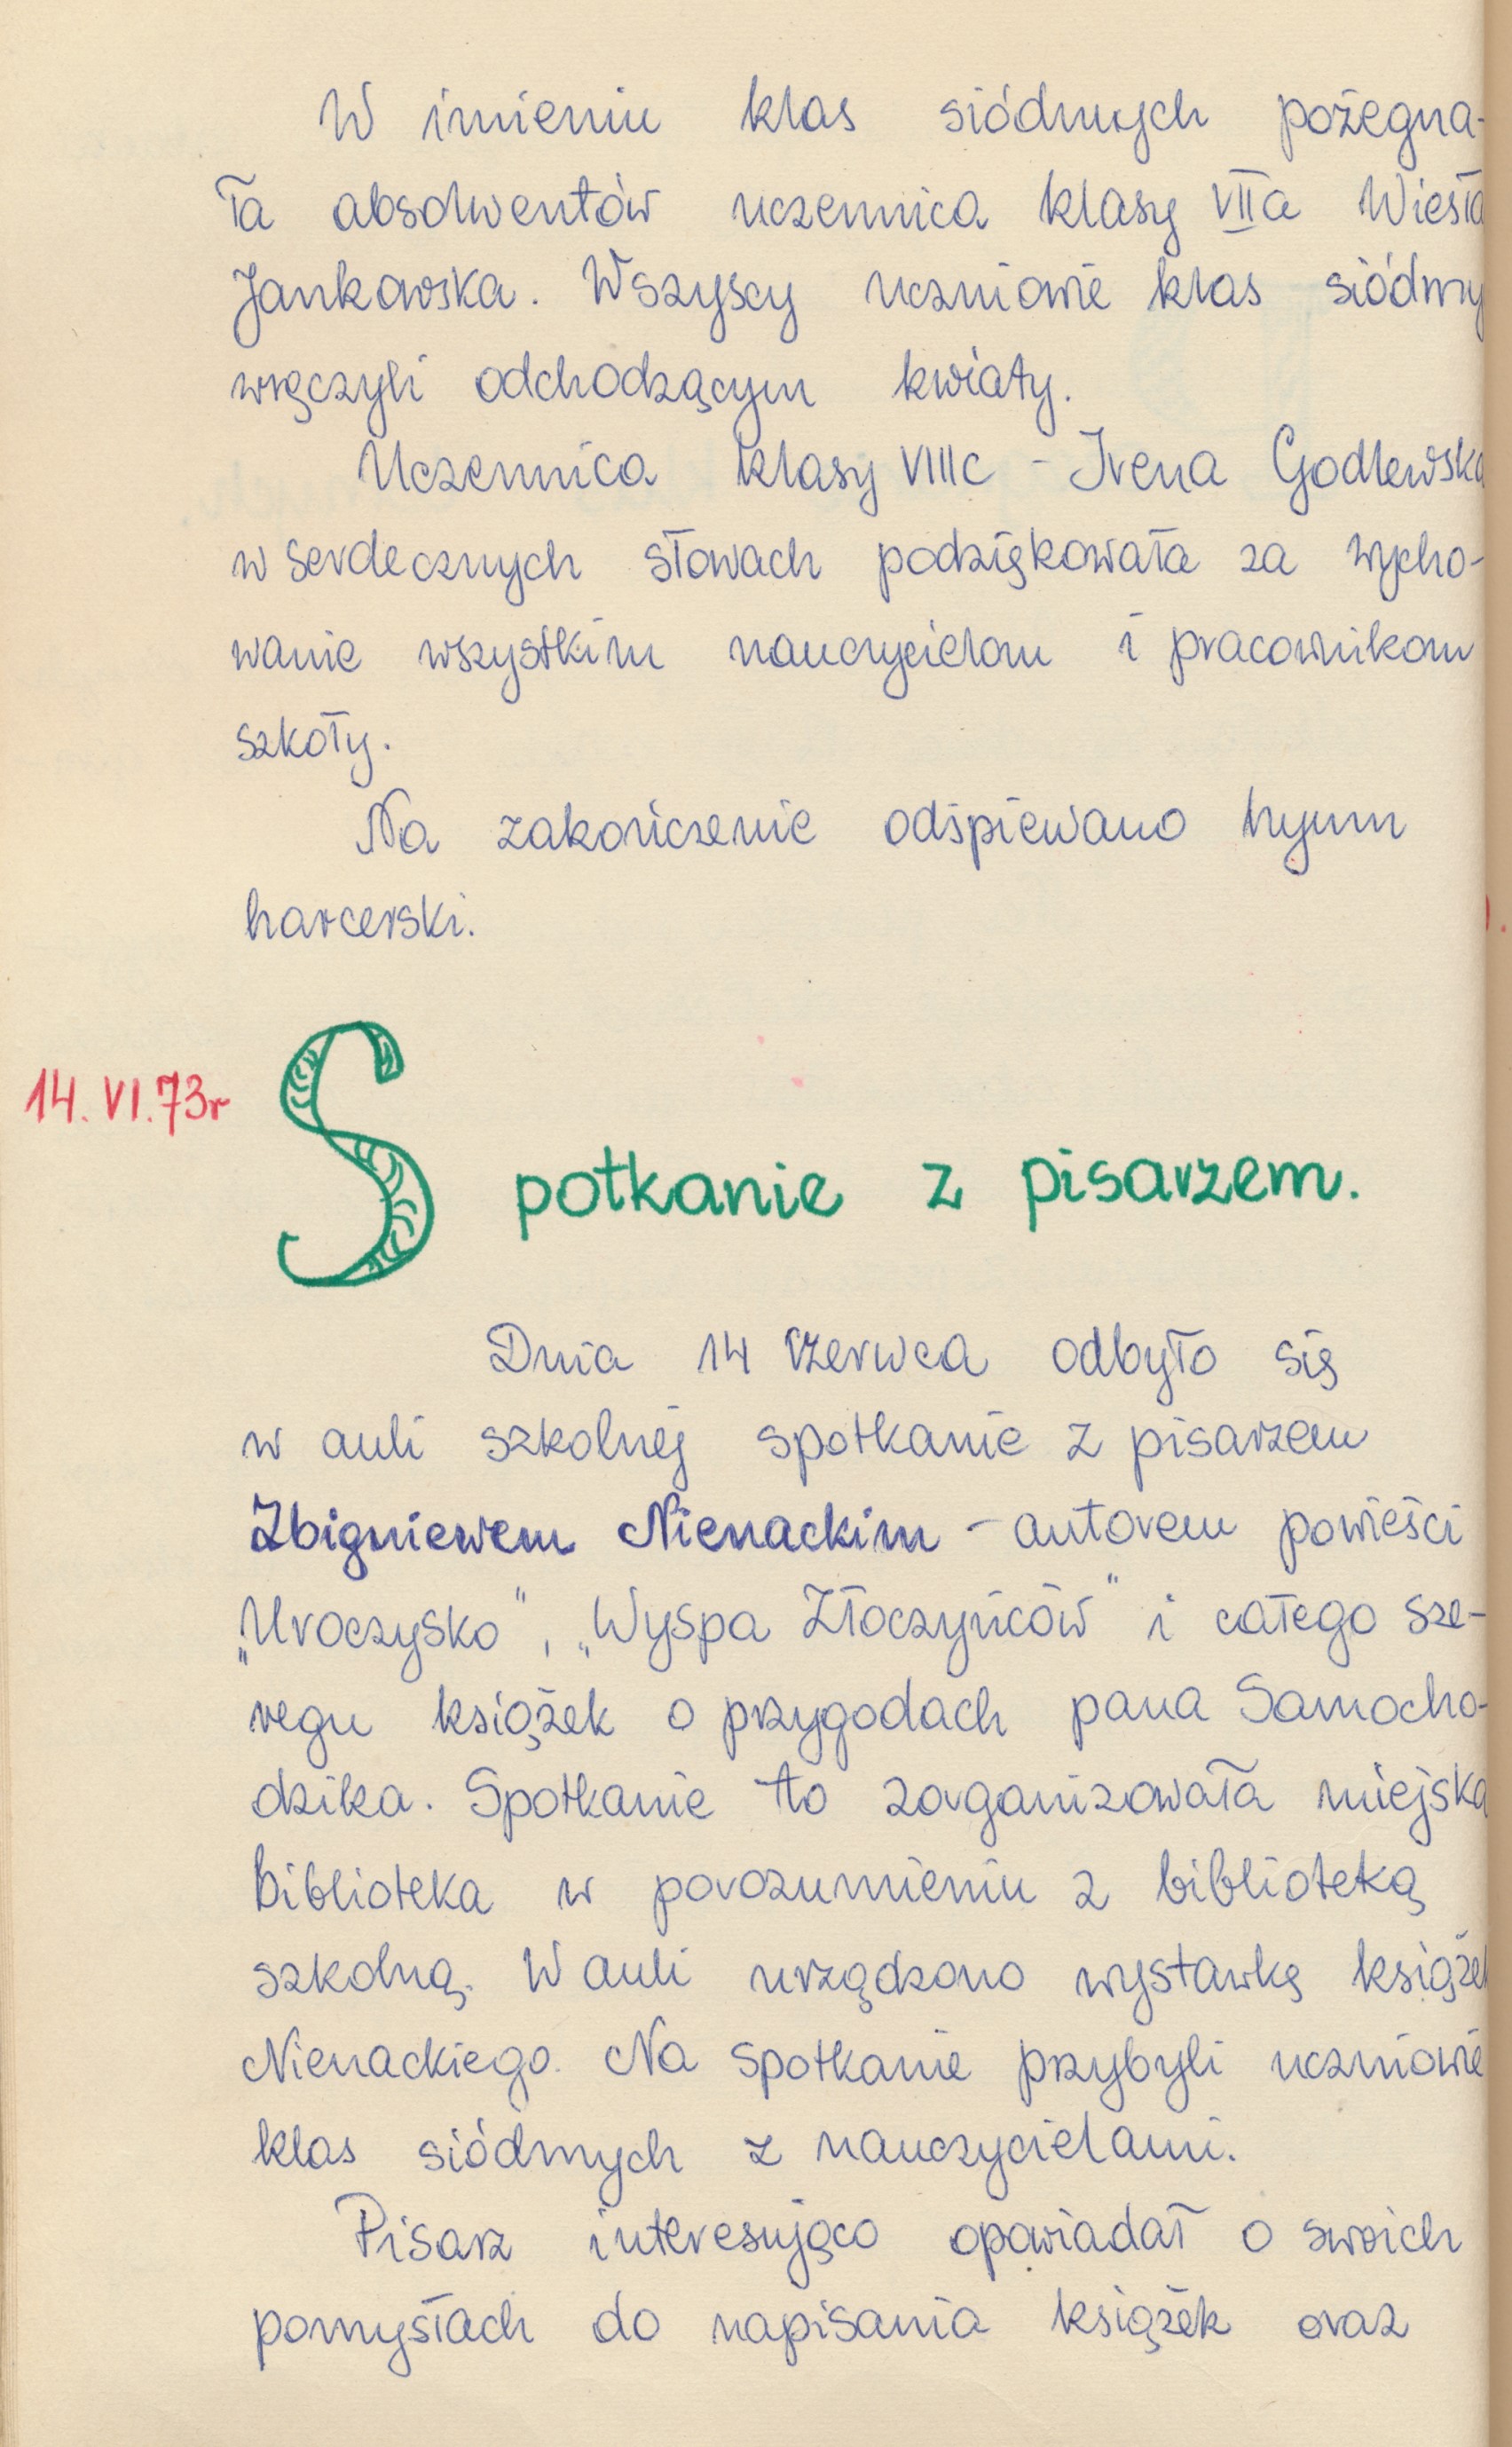 W imieniu klas siódmych pożegna-
ła absolwentów uczennica klasy VIIa Wiesła
Jankowska. Wszyscy uczniowie klas siódmy
wręczyli odchodzącym kwiaty.
Uczennica klasy VIIIc - Irena Godlewska
w serdecznych słowach podziękowała za wycho-
wanie wszystkim nauczycielom i pracownikom
szkoły.
Na zakończenie odśpiewano hymn
harcerski.
14. VI. 73r
Spotkanie z pisarzem.
Dnia 14 czerwca odbyło się
w auli szkolnej spotkanie z pisarzem
Zbigniewem Nienackim - autorem powieści
„Uroczysko", „Wyspa Złoczyńców" i całego sze-
regu książek o przygodach pana Samocho-
dzika. Spotkanie to zorganizowała miejska
biblioteka w porozumieniu z biblioteką
szkolną. W auli urządzono wystawkę książek
Nienackiego. Na spotkanie przybyli uczniowie
klas siódmych z nauczycielami.
Pisarz interesująco opowiadał o swoich
pomysłach do napisania książek oraz